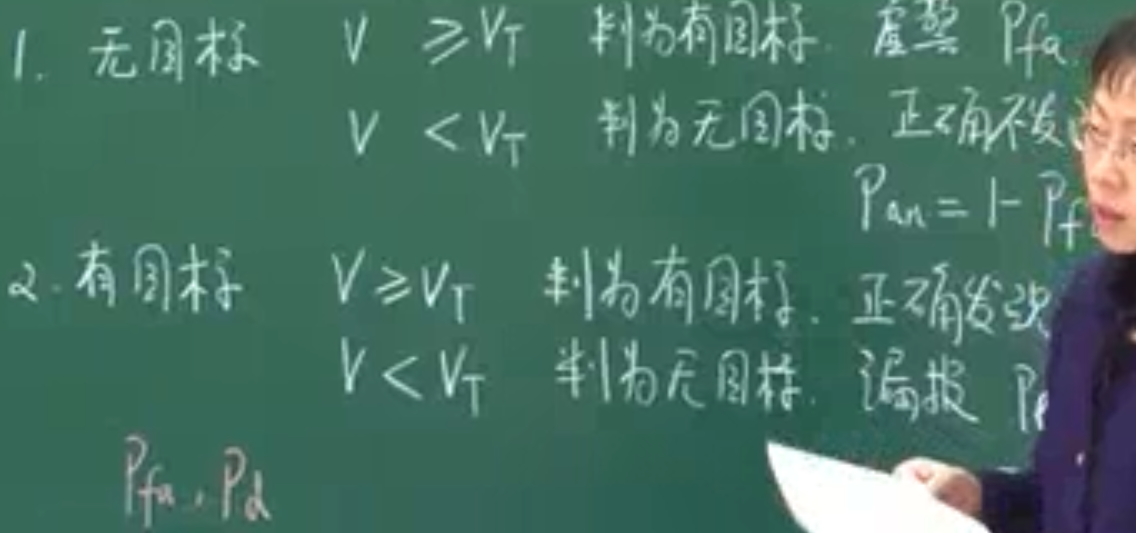 1. 无目标 V ≥ V_T 判为有目标. 虚警 P_fa
V < V_T 判为无目标. 正确不发
P_an = 1 - P_f
2. 有目标 V ≥ V_T 判为有目标. 正确发现
V < V_T 判为无目标. 漏报 P
P_fa, P_d